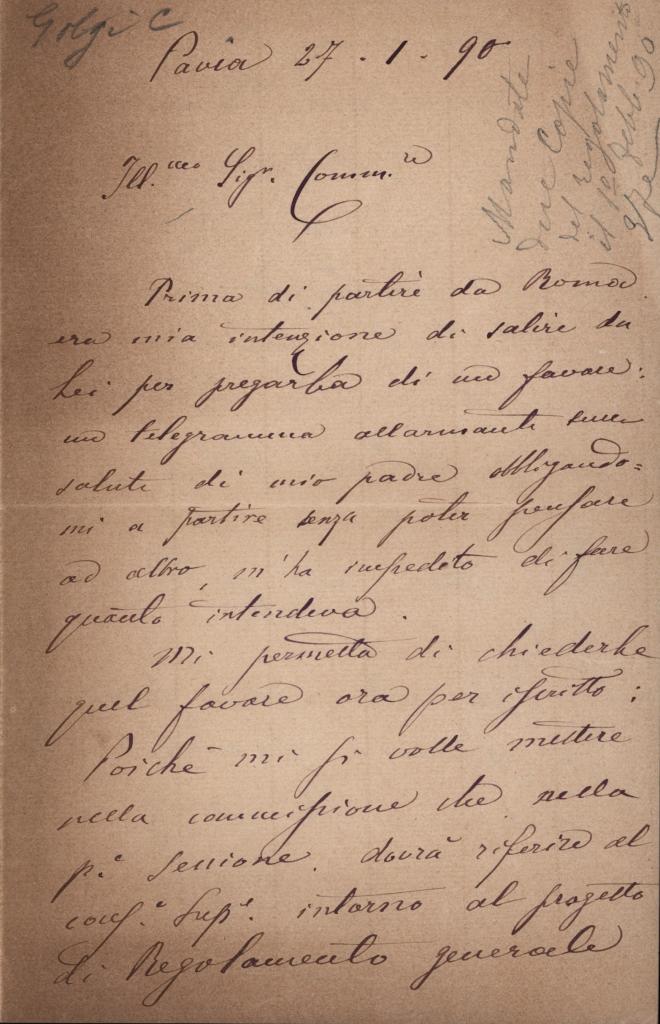 Golgi C
Pavia 27 - 1 - 90
Mandate
due copie
del regolamento
il 1° Febb. 90
Ill.mo Sigr. Comm.re
Prima di partire da Roma
era mia intenzione di salire da
Lei per pregarLa di un favore:
un telegramma allarmante sulla
salute di mio padre obbligando=
mi a partire senza poter pensare
ad altro, m'ha impedito di fare
quanto intendeva.
Mi permetta di chiederLe
quel favore ora per iscritto:
Poichè mi si volle mettere
nella commissione che nella
p.a sessione dovrà riferire al
cons.o Sup.e intorno al progetto
di Regolamento generale